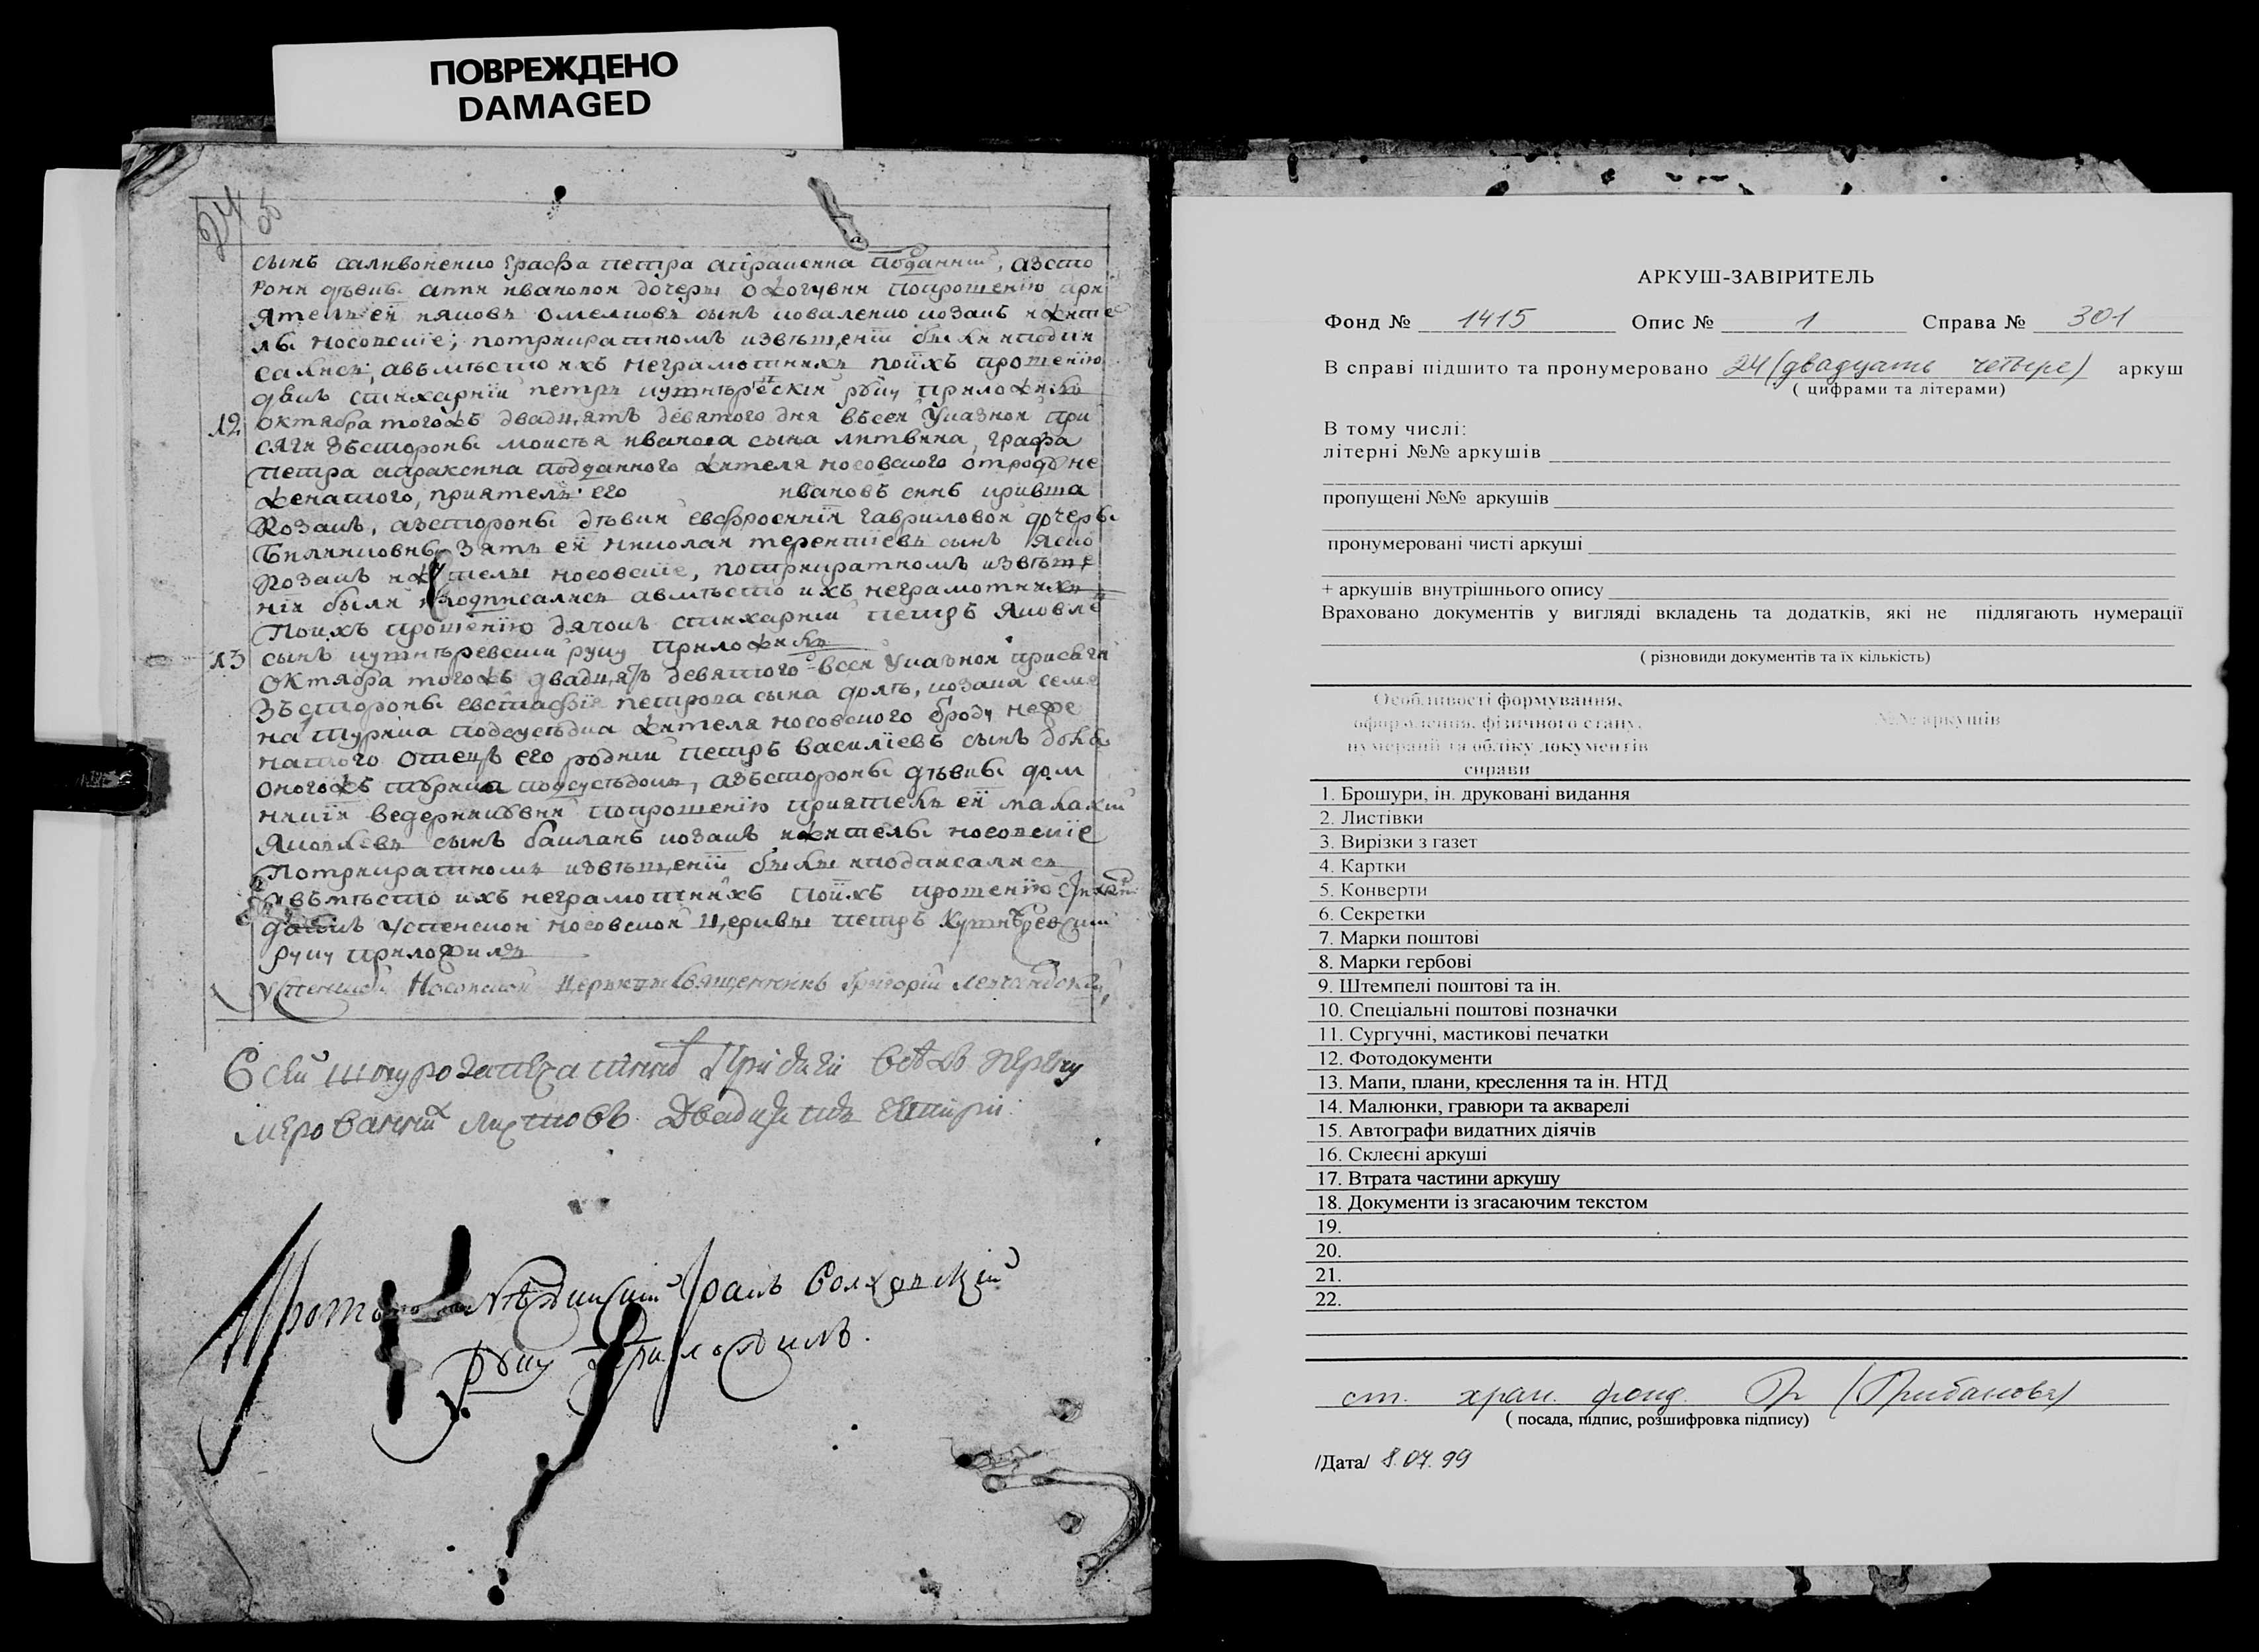 ПОВРЕЖДЕНО
DAMAGED
24
сынъ саливоненко графа петра апраксина подданний, азсто
рони дѣвиц анни ивановой дочери попрошенїю при
ятель ей яковъ омелковъ сынъ коваленко козакъ ижите
лѣ носовскїе, потрикратномъ извѣщенїи были иподпи
салися, авмѣсто ихъ неграмотнихъ поихъ прошенїю
дякъ стихарнїй петръ кутнѣревскїй руку приложилъ
12 октября тогожъ двадцять девятого дня въсей указной при
сяги зъстороны моисея иванова сына литвина, графа
петра апраксина подданного жителя носовского отроду не
женатого, приятель его ивановъ синъ кривша
козакъ, азстороны дѣвки евфросинїи гавриловой дочеры
зять ей николай терентїевъ сынъ яско
козакъ ижители носовскїе, потрикратномъ извѣще
нїи были иподписалися авмѣсто ихъ неграмотнихъ
Поихъ прошенїю дячокъ стихарнїй петръ яковле
сынъ кутнѣревский руку приложилъ
13 октября тогожъ двадцять девятого всей указной присяги
Зъстороны евстафїя петрова сына долѣ, козака семе
на туркча подсусѣдка жителя носовского броду неже
натого отецъ его родний петръ василїевъ сынъ
оногожъ подсусѣдокъ, азъстороны дѣвки дом
никїи ведерниковни попрошенїю приятель ей малахий
Яковлевъ сынъ бакланъ козакъ ижителы носовскїе
Потрикратномъ извѣщенїи были иподписалися
авъмѣсто ихъ неграмотнихъ поихъ прошенїю стихарн
дякъ успенской носовской церкви петръ Кутнѣревский
руку приложилъ
Успенской Носовской Церкви Священникъ Григорий
В сей шнурозапечатанной присяги всѣхъ перену
мерованних листовъ двадцять четири
Протопопъ Нѣжинский Иоанъ Волховский
руку приложилъ.
АРКУШ-ЗАВІРИТЕЛЬ
Фонд № 1415 Опис № 1 Справа № 301
В справі підшито та пронумеровано 24 (двадцать четыре) аркуш
( цифрами та літерами)
В тому числі:
літерні №№ аркушів
пропущені №№ аркушів
пронумеровані чисті аркуші
+ аркушів внутрішнього опису
Враховано документів у вигляді вкладень та додатків, які не підлягають нумерації
( різновиди документів та їх кількість)
Особливості формування,
оформлення, фізичного стану, №№ аркушів
нумерації та обліку документів
справи
1. Брошури, ін. друковані видання
2. Листівки
3. Вирізки з газет
4. Картки
5. Конверти
6. Секретки
7. Марки поштові
8. Марки гербові
9. Штемпелі поштові та ін.
10. Спеціальні поштові позначки
11. Сургучні, мастикові печатки
12. Фотодокументи
13. Мапи, плани, креслення та ін. НТД
14. Малюнки, гравюри та акварелі
15. Автографи видатних діячів
16. Склеєні аркуші
17. Втрата частини аркушу
18. Документи із згасаючим текстом
19.
20.
21.
22.
ст. хран. фонд. Гр (Грибанова)
( посада, підпис, розшифровка підпису)
/Дата/ 8.07.99